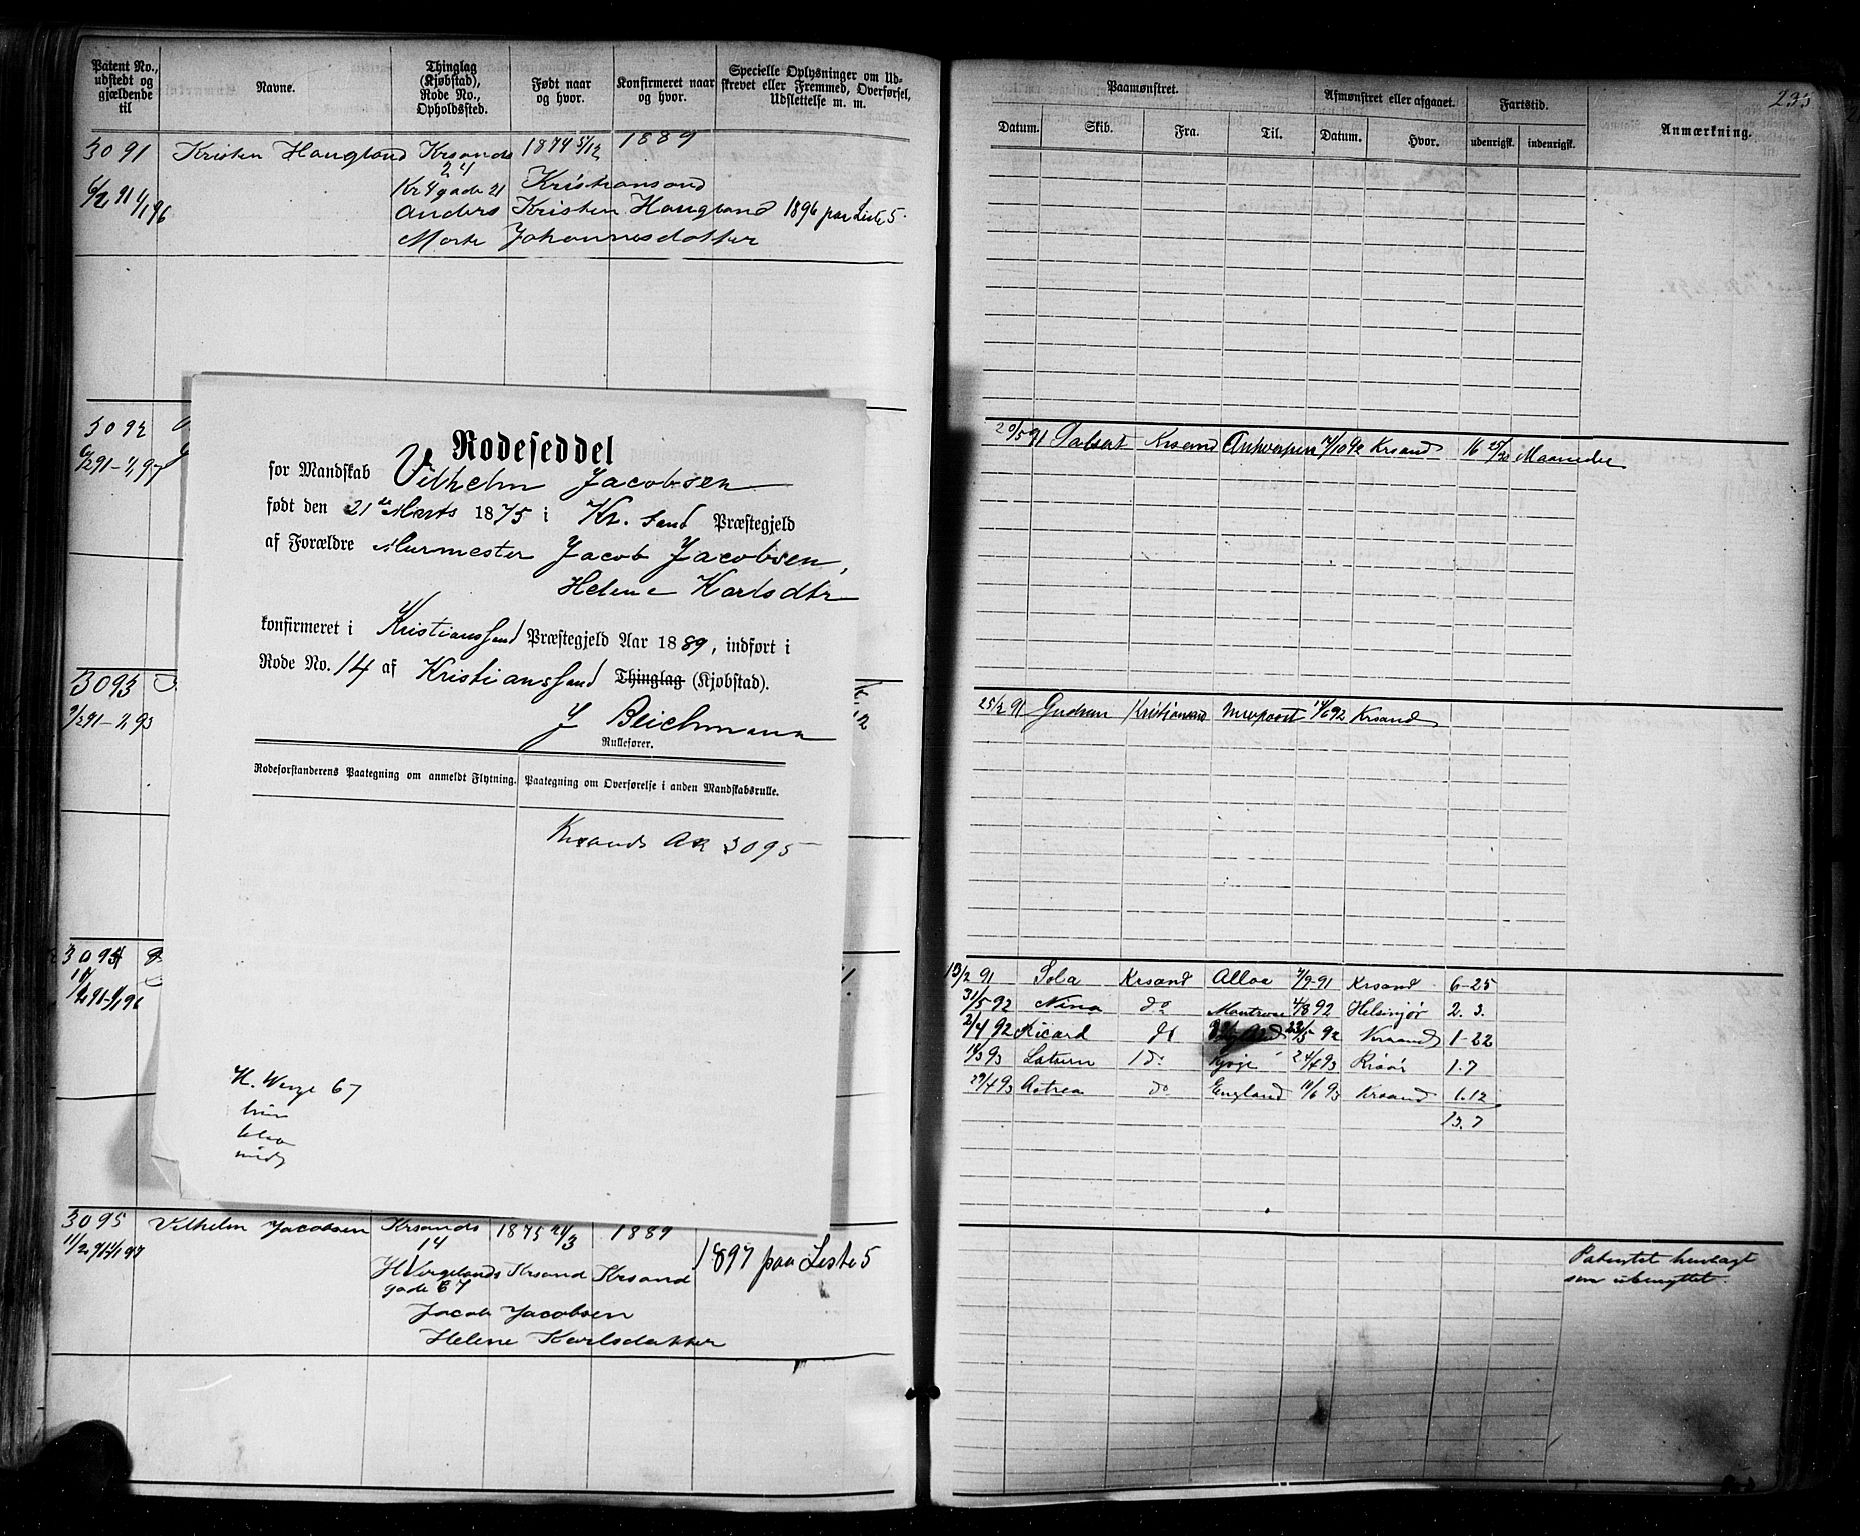 Patent No., udstedt og gjældende til
Navne.
Thinglag (Kjøbstad), Rode No., Opholdssted.
Født naar og hvor.
Konfirmeret naar og hvor.
Specielle Oplysninger om Udskrevet eller Fremmed, Overførsel, Udslettelse m. m.
3091 Kristen Haugland Krsands 1874 5/12 1889
24
6/2 91 1/1 96 Kr 4 gade 21 Kristiansand
Anders Kristen Haugland 1896 paa Liste 5.
Johannesdatter
3092
6/2 91 - 1/1 97
3093
9/2 91 - 1/1 93
3094
3095 Vilhelm Jacobsen Krsands 1875 21/3 1889
14
11/2 91 1/1 97
H Vergelands Krsand Krsand 1897 paa Liste 5
gade 67
Jacob Jacobsen
Helene Karlsdatter
Rodeseddel
for Mandskab Vilhelm Jacobsen
født den 21de Marts 1875 i Kr.sand Præstegjeld
af Forældre Murmester Jacob Jacobsen,
Helene Karlsdtr
konfirmeret i Kristianssand Præstegjeld Aar 1889, indført i
Rode No. 14 af Kristianssand Thinglag (Kjøbstad).
J Beichmann
Rullefører.
Rodeforstanderens Paategning om anmeldt Flytning. Paategning om Overførelse i anden Mandskabsrulle.
Krsands AR 3095
H. Werge 67
233
Paamønstret. Afmønstret eller afgaaet. Fartstid. Anmærkning.
Datum. Skib. Fra. Til. Datum. Hvor. udenrigsk. indenrigsk.
20/5 91 Krsand Antwerpen 1/10 92 Krsand 16 Maaneder
25/2 91 Gudrun Kristiansand 92 Krsand
13/2 91 Sola Krsand Alloa 7/9-91 Krsand 6-25
31/5 92 Nina do Montrose 4/8 92 Helsingør 2. 3.
2/4 92 Ricard 23/5 92 Krsand 1-22
93 Saturn do Kjøge 24/4 93 Risør 1.7
29/4 93 Astrea do England 11/6 93 Krsand 1.12
13.7
Patentet henlagt
som ubenyttet.